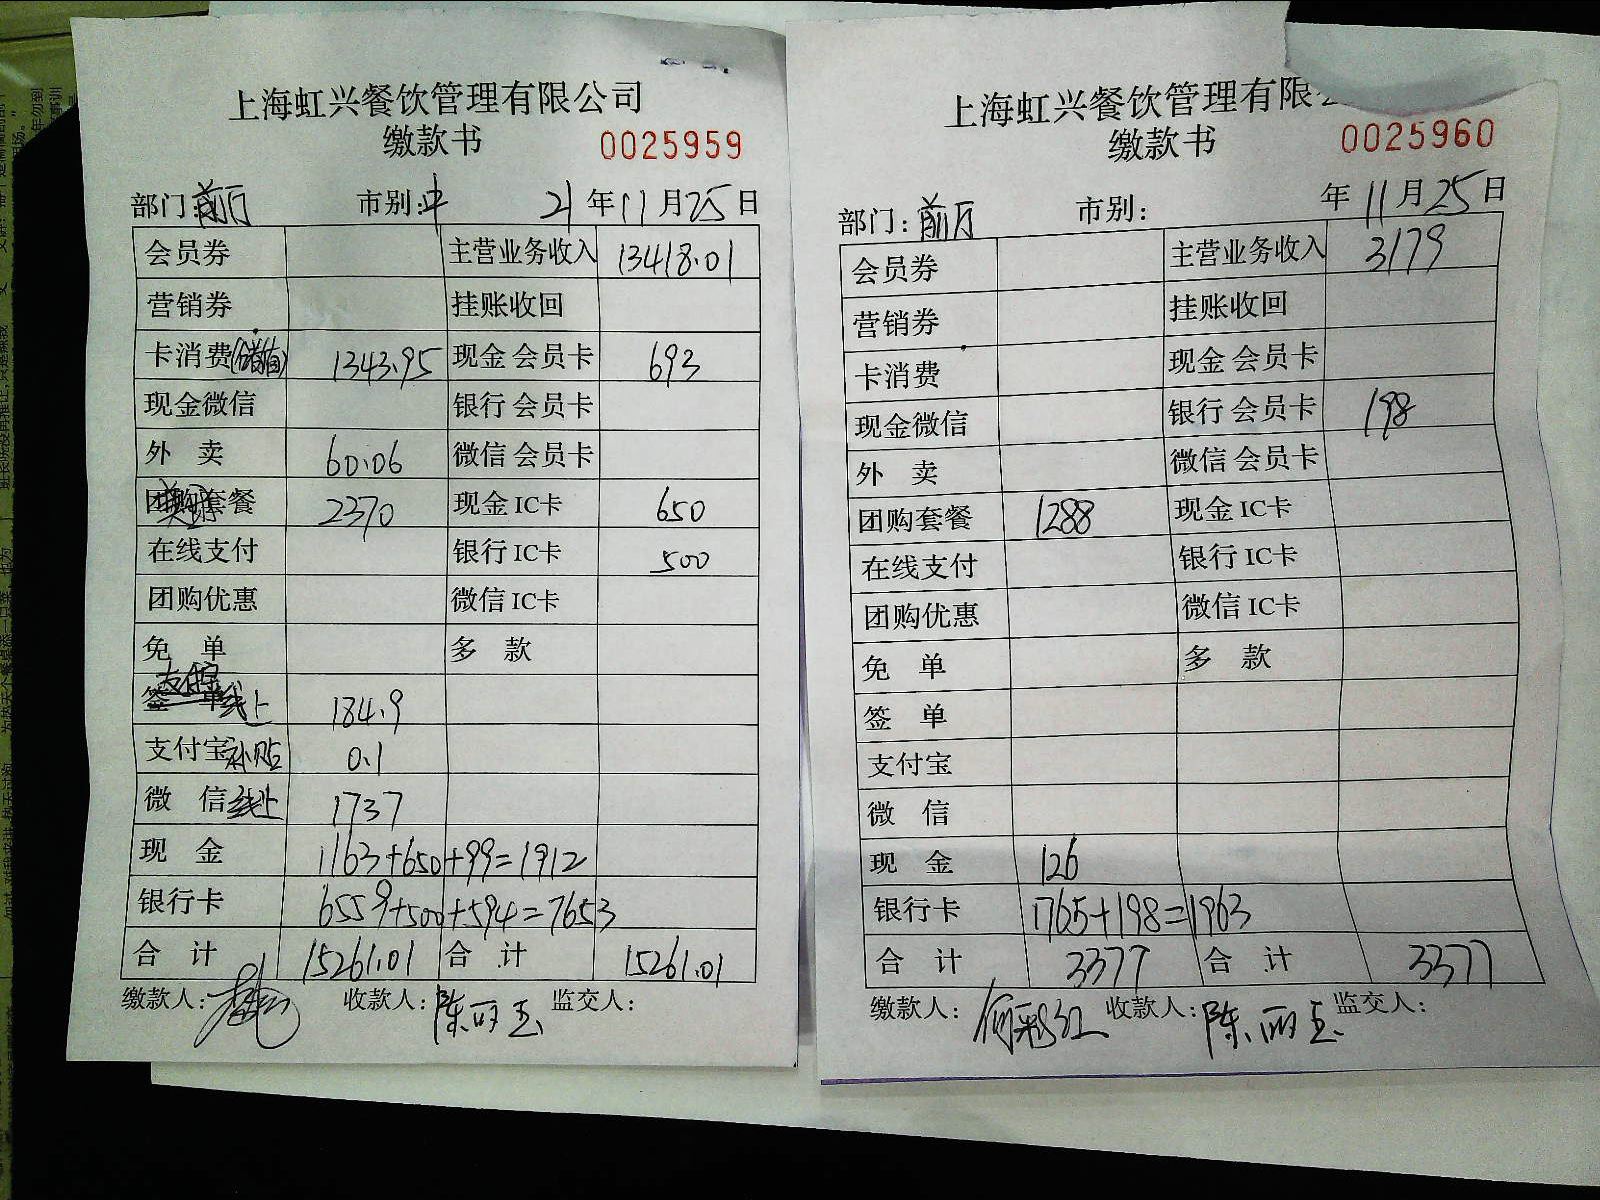 上海虹兴餐饮管理有限公司
缴款书 0025959
部门:前厅 市别:中 21年11月25日
会员券 主营业务收入 13418.01
营销券 挂账收回
卡消费(储值) 1343.95 现金 会员卡 693
现金微信 银行 会员卡
外 卖 60.06 微信 会员卡
团购套餐 2370 现金 IC卡 650
在线支付 银行 IC卡 500
团购优惠 微信 IC卡
免 单 多 款
支付宝线上 184.9
支付宝补贴 0.1
微 信线上 1737
现 金 1163+650+99=1912
银行卡 6559+500+594=7653
合 计 15261.01 合 计 15261.01
缴款人: 收款人:陈丽玉 监交人:
上海虹兴餐饮管理有限公
缴款书 0025960
部门:前厅 市别: 年11月25日
会员券 主营业务收入 3179
营销券 挂账收回
卡消费 现金 会员卡
现金微信 银行 会员卡 198
外 卖 微信 会员卡
团购套餐 1288 现金 IC卡
在线支付 银行 IC卡
团购优惠 微信 IC卡
免 单 多 款
签 单
支付宝
微 信
现 金 126
银行卡 1765+198=1963
合 计 3377 合 计 3377
缴款人:何彩红 收款人:陈丽玉 监交人: